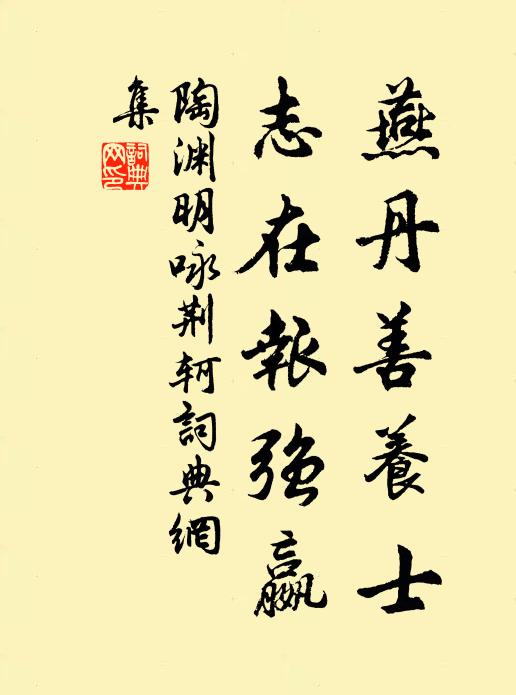 燕丹善養士
志在報強嬴
陶渊明咏荆轲詞典網
集
詞典網印